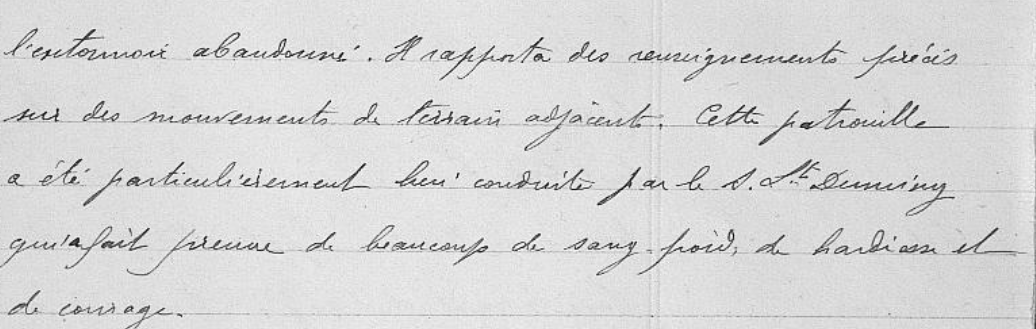 l'entonnoir abandonné. Il rapporta des renseignements précis
sur des mouvements de terrain adjacents. Cette patrouille
a été particulièrement bien conduite par le S. Lt
qui a fait preuve de beaucoup de sang-froid, de hardiesse et
de courage.